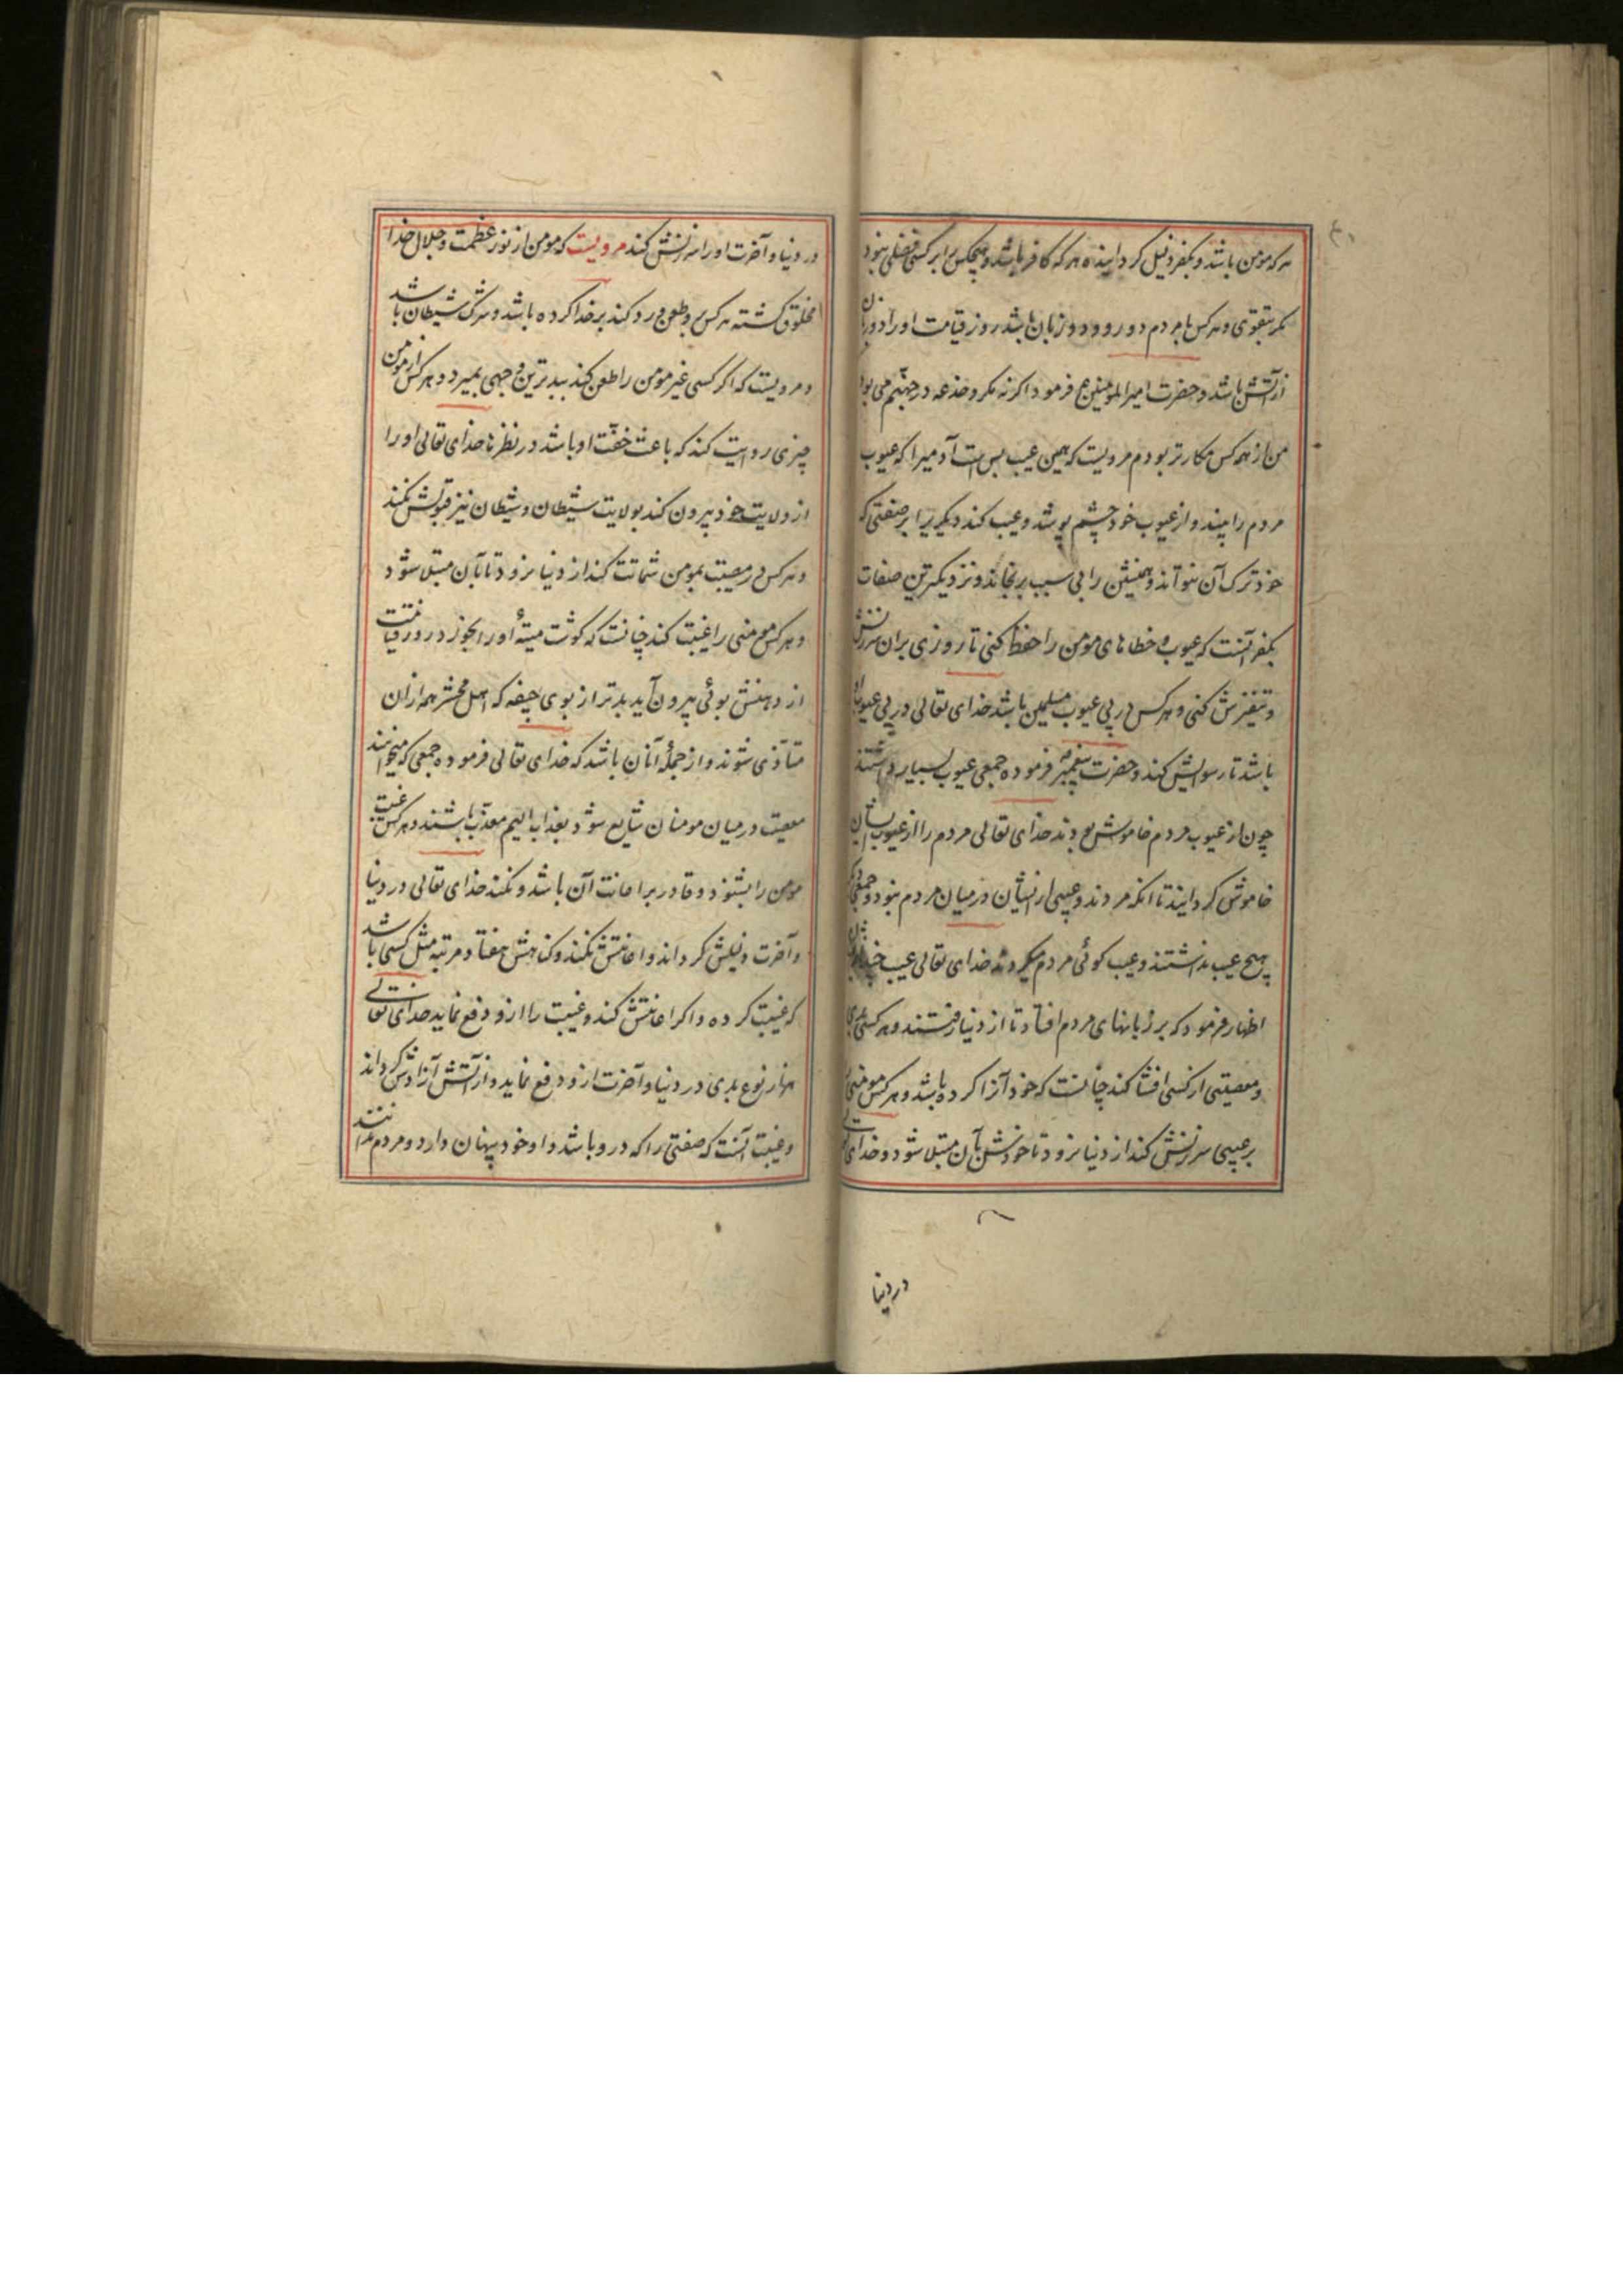 هر که مومن باشد و بکفر ذلیل گردانیده هر که کافر باشد و هیچکس را بر کسی فضلی نبود
مگر بتقوی و هر کس با مردم دو رو و دو زبان باشد روز قیامت او را دو زبان
از آتش باشد و حضرت امیرالمومنین ع فرمود اگر نه مکر و خدعه در جهنم می بود
من از همه کس مکارتر بودم مرویست که همین عیب بس است آدمیرا که عیوب
مردم را بیند و از عیوب خود چشم پوشد و عیب کند دیگریرا بر صفتی که
خود ترک آن نتواند و همنشین را بی سبب برنجاند و نزدیکترین صفات
بکفر آنست که عیوب و خطاهای مومن را حفظ کنی تا روزی بران سرزنش
و کنی و هر کس در پی عیوب مسلمین باشد خدای تعالی در پی عیوب او
باشد تا رسوایش کند و حضرت پیغمبر ص فرموده جمعی عیوب بسیار داشتند
چون از عیوب مردم خاموش بودند خدای تعالی مردم را از عیوب ایشان
خاموش گردانید تا انکه مردند و عیبی ازیشان در میان مردم نبود و جمعی که
هیچ عیب نداشتند و عیب گوئی مردم میکردند خدای تعالی عیب چند از
اظهار فرمود که بر زبانهای مردم افتاد تا از دنیا رفتند و هر کسی
و معصیتی از کسی افشا کند چنانست که خود آنرا کرده باشد و هر کس مومنی را
بر عیبی سرزنش کند از دنیا نرود تا خودش بآن مبتلا شود و خدای تعالی
در دنیا
در دنیا و آخرت او را سرزنش کند مرویست که مومن از نور عظمت و جلال خدا
مخلوق گشته هر کس بر و طعن و رد کند بر خدا کرده باشد و شرک شیطان باشد
و مرویست که اگر کسی غیر مومن را طعن کند ببدترین وجهی بمیرد و هر کس از مومن
چیزی روایت کند که باعث خفّت او باشد در نظرها خدای تعالی او را
از ولایت خود بیرون کند بولایت شیطان و شیطان نیز قبولش نکند
و هر کس در مصیبت بمومن شماتت کند از دنیا نرود تا بآن مبتلا شود
و هر کس مومنی را غیبت کند چنانست که گوشت میتهٔ او را بخورد و در روز قیامت
از دهنش بوئی بیرون آید بدتر از بوی جیفه که اهل محشر همه ازان
متأذی شوند و از جملهٔ آنان باشد که خدای تعالی فرموده جمعی که میخواهند
معصیت در میان مومنان شایع شود بعذاب الیم معذّب باشند و هر کس غیبت
مومن را بشنود و قادر بر اعانت آن باشد و نکند خدای تعالی در دنیا
و آخرت ذلیلش گرداند و اعانتش نکند و گناهش هفتاد مرتبه مثل کسی باشد
که غیبت کرده و اگر اعانتش کند و غیبت را ازو دفع نماید خدای تعالی
هزار نوع بدی در دنیا و آخرت ازو دفع نماید و از آتش آزادش گرداند
و غیبت آنست که صفتی را که درو باشد و او خود پنهان دارد و مردم ندانند